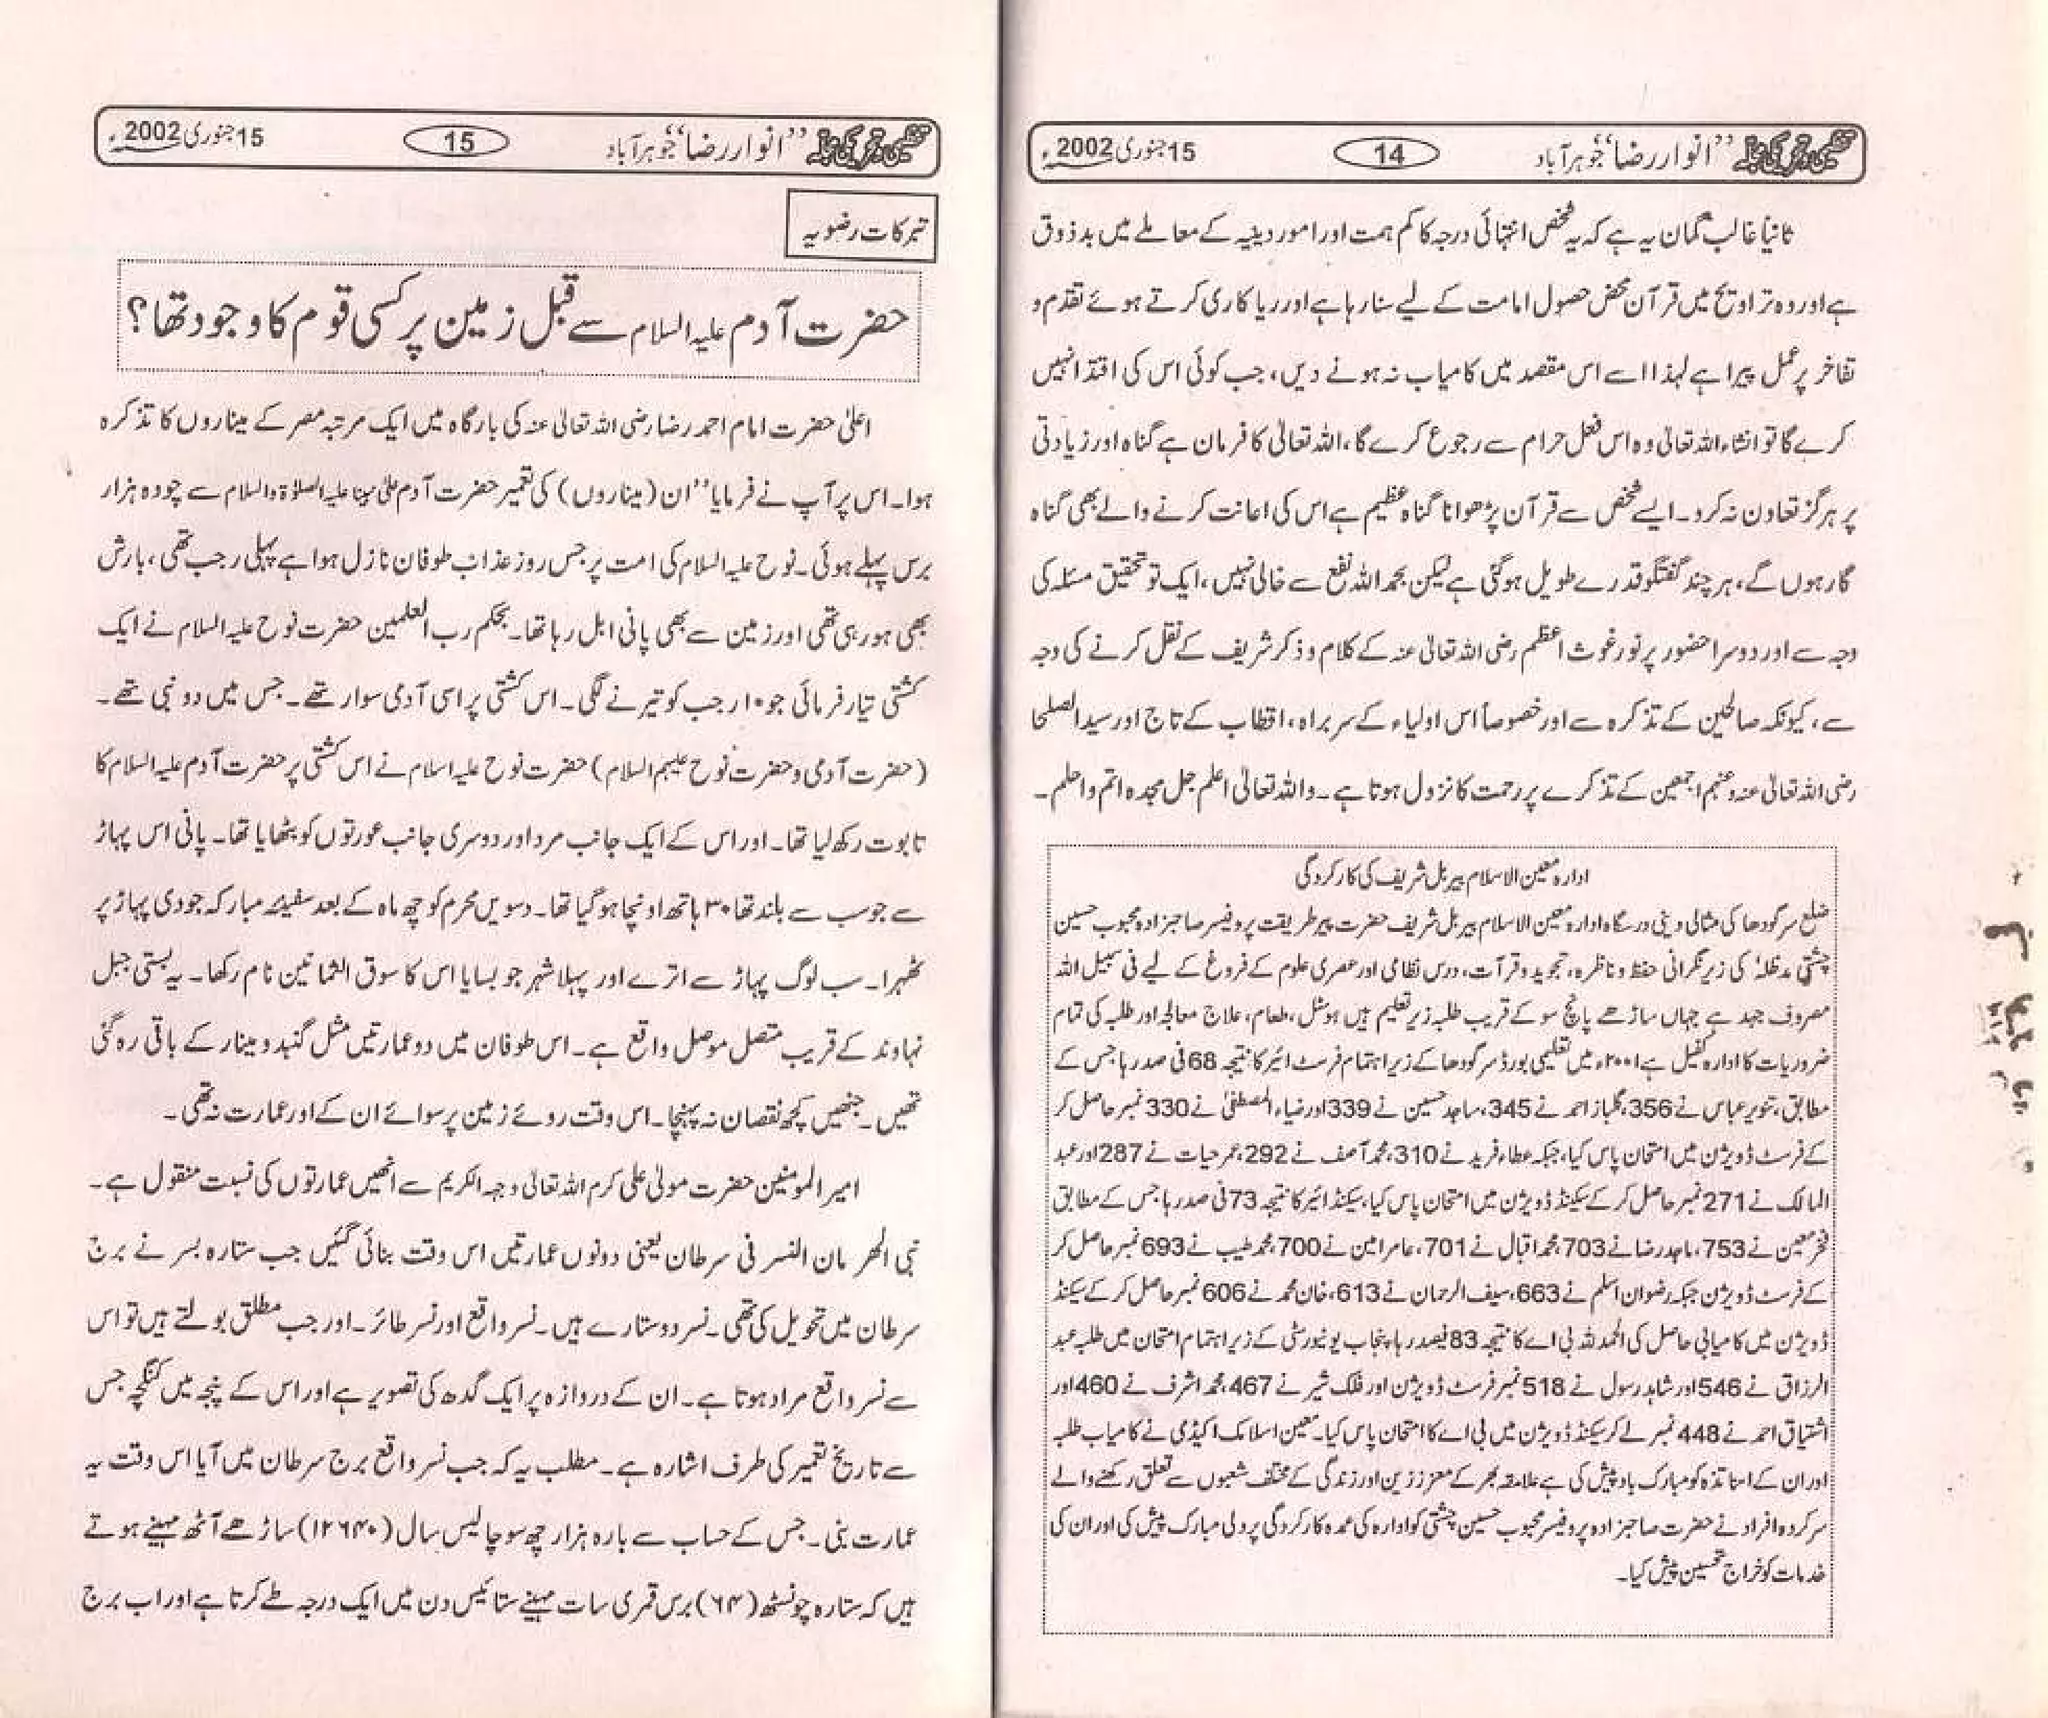 تنظیمی و تحریکی مجلہ ”انوار رضا“ جوہر آباد 14 15 جنوری 2002ء
ثانیاً غالب گمان یہ ہے کہ یہ شخص انتہائی درجہ کا کم ہمت اور امور دینیہ کے معاملے میں بد ذوق
ہے اور وہ تراویح میں قرآن محض حصول امامت کے لیے سنا رہا ہے اور ریا کاری کرتے ہوئے تقدم و
تفاخر پر عمل پیرا ہے لہذا اسے اس مقصد میں کامیاب نہ ہونے دیں، جب کوئی اس کی اقتدا نہیں
کرے گا تو انشاء اللہ تعالیٰ وہ اس فعل حرام سے رجوع کرے گا، اللہ تعالیٰ کا فرمان ہے گناہ اور زیادتی
پر ہرگز تعاون نہ کرو۔ ایسے شخص سے قرآن پڑھوانا گناہ عظیم ہے اس کی اعانت کرنے والے بھی گناہ
گار ہوں گے، ہر چند گفتگو قدرے طویل ہو گئی ہے لیکن بحمد اللہ نفع سے خالی نہیں، ایک تو تحقیق مسئلہ کی
وجہ سے اور دوسرا حضور پر نور غوث اعظم رضی اللہ تعالیٰ عنہ کے کلام و ذکر شریف کے نقل کرنے کی وجہ
سے، کیونکہ صالحین کے تذکرہ سے اور خصوصاً اس اولیاء کے سربراہ، اقطاب کے تاج اور سید الصلحا
رضی اللہ تعالیٰ عنہ و عنہم اجمعین کے تذکرے پر رحمت کا نزول ہوتا ہے۔ واللہ تعالیٰ اعلم جل مجدہ اتم واحلم۔
ادارہ معین الاسلام بیربل شریف کی کارکردگی
ضلع سرگودھا کی مثالی دینی درسگاہ ادارہ معین الاسلام بیربل شریف حضرت پیر طریقت پروفیسر صاحبزادہ محبوب حسین
چشتی مدظلہ کی زیر نگرانی حفظ و ناظرہ، تجوید و قرآت، درس نظامی اور عصری علوم کے فروغ کے لیے فی سبیل اللہ
مصروف جہد ہے جہاں ساڑھے پانچ سو کے قریب طلبہ زیر تعلیم ہیں ہوسٹل، طعام، علاج معالجہ اور طلبہ کی تمام
ضروریات کا ادارہ کفیل ہے ۲۰۰۱ء میں تعلیمی بورڈ سرگودھا کے زیر اہتمام فرسٹ ائیر کا نتیجہ 68 فی صد رہا جس کے
مطابق، تنویر عباس نے 356، گلباز احمد نے 345، ساجد حسین نے 339 اور ضیاء المصطفیٰ نے 330 نمبر حاصل کر
کے فرسٹ ڈویژن میں امتحان پاس کیا، جبکہ عطاء فرید نے 310، محمد آصف نے 292، عمر حیات نے 287 اور عبد
المالک نے 271 نمبر حاصل کر کے سیکنڈ ڈویژن میں امتحان پاس کیا، سیکنڈ ائیر کا نتیجہ 73 فی صد رہا جس کے مطابق
فخر معین نے 753، ماجد رضا نے 703، محمد اقبال نے 701، عامر امین نے 700، محمد طیب نے 693 نمبر حاصل کر
کے فرسٹ ڈویژن جبکہ رضوان اسلم نے 663، سیف الرحمان نے 613، خان محمد نے 606 نمبر حاصل کر کے سیکنڈ
ڈویژن میں کامیابی حاصل کی الحمد للہ بی اے کا نتیجہ 83 فیصد رہا پنجاب یونیورسٹی کے زیر اہتمام امتحان میں طلبہ عبد
الرزاق نے 546 اور شاہد رسول نے 518 نمبر فرسٹ ڈویژن اور فلک شیر نے 467، محمد اشرف نے 460 اور
اشتیاق احمد نے 448 نمبر لے کر سیکنڈ ڈویژن میں بی اے کا امتحان پاس کیا۔ معین اسلامک اکیڈمی نے کامیاب طلبہ
اور ان کے اساتذہ کو مبارک باد پیش کی ہے علاقہ بھر کے معززین اور زندگی کے مختلف شعبوں سے تعلق رکھنے والے
سرکردہ افراد نے حضرت صاحبزادہ پروفیسر محبوب حسین چشتی کو ادارہ کی عمدہ کارکردگی پر دلی مبارک پیش کی اور ان کی
خدمات کو خراج تحسین پیش کیا۔
تنظیمی و تحریکی مجلہ ”انوار رضا“ جوہر آباد 15 15 جنوری 2002ء
تبرکات رضویہ
حضرت آدم علیہ السلام سے قبل زمین پر کسی قوم کا وجود تھا؟
اعلیٰ حضرت امام احمد رضا رضی اللہ تعالیٰ عنہ کی بارگاہ میں ایک مرتبہ مصر کے میناروں کا تذکرہ
ہوا۔ اس پر آپ نے فرمایا ”ان (میناروں) کی تعمیر حضرت آدم علیٰ نبینا علیہ الصلوٰۃ والسلام سے چودہ ہزار
برس پہلے ہوئی۔ نوح علیہ السلام کی امت پر جس روز عذاب طوفان نازل ہوا ہے پہلی رجب تھی، بارش
بھی ہو رہی تھی اور زمین سے بھی پانی ابل رہا تھا۔ بحکم رب العلمین حضرت نوح علیہ السلام نے ایک
کشتی تیار فرمائی جو ۱۰ رجب کو تیرنے لگی۔ اس کشتی پر اسی آدمی سوار تھے۔ جس میں دو نبی تھے۔
(حضرت آدمی و حضرت نوح علیہم السلام) حضرت نوح علیہ اسلام نے اس کشتی پر حضرت آدم علیہ السلام کا
تابوت رکھ لیا تھا۔ اور اس کے ایک جانب مرد اور دوسری جانب عورتوں کو بٹھایا تھا۔ پانی اس پہاڑ
سے جو سب سے بلند تھا ۳۰ ہاتھ اونچا ہو گیا تھا۔ دسویں محرم کو چھ ماہ کے بعد سفینہ مبارکہ جودی پہاڑ پر
ٹھہرا۔ سب لوگ پہاڑ سے اترے اور پہلا شہر جو بسایا اس کا سوق الثمانین نام رکھا۔ یہ بستی جبل
نہاوند کے قریب متصل موصل واقع ہے۔ اس طوفان میں دو عمارتیں مثل گنبد و مینار کے باقی رہ گئی
تھیں۔ جنھیں کچھ نقصان نہ پہنچا۔ اس وقت روئے زمین پر سوائے ان کے اور عمارت نہ تھی۔
امیر المومنین حضرت مولیٰ علی کرم اللہ تعالیٰ وجہہ الکریم سے انھیں عمارتوں کی نسبت منقول ہے۔
نبی الھر مان النسر فی سرطان یعنی دونوں عمارتیں اس وقت بنائی گئیں جب ستارہ نسر نے برج
سرطان میں تحویل کی تھی۔ نسر دو ستارے ہیں۔ نسر واقع اور نسر طائر۔ اور جب مطلق بولتے ہیں تو اس
سے نسر واقع مراد ہوتا ہے۔ ان کے دروازہ پر ایک گدھ کی تصویر ہے اور اس کے پنجہ میں گنگچہ جس
سے تاریخ تعمیر کی طرف اشارہ ہے۔ مطلب یہ کہ جب نسر واقع برج سرطان میں آیا اس وقت یہ
عمارت بنی۔ جس کے حساب سے بارہ ہزار چھ سو چالیس سال (۱۲۶۴۰) ساڑھے آٹھ مہینے ہوتے
ہیں کہ ستارہ چونسٹھ (۶۴) برس قمری سات مہینے ستائیس دن میں ایک درجہ طے کرتا ہے اور اب برج